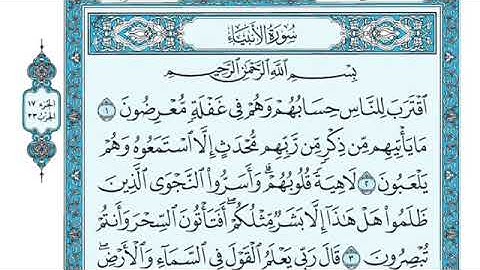 سُورَةُ الأَنبِيَاءِ
بِسْمِ اللَّهِ الرَّحْمَٰنِ الرَّحِيمِ
اقْتَرَبَ لِلنَّاسِ حِسَابُهُمْ وَهُمْ فِي غَفْلَةٍ مُّعْرِضُونَ ١
مَا يَأْتِيهِم مِّن ذِكْرٍ مِّن رَّبِّهِم مُّحْدَثٍ إِلَّا اسْتَمَعُوهُ وَهُمْ
يَلْعَبُونَ ٢ لَاهِيَةً قُلُوبُهُمْ وَأَسَرُّوا النَّجْوَى الَّذِينَ
ظَلَمُوا هَلْ هَٰذَا إِلَّا بَشَرٌ مِّثْلُكُمْ أَفَتَأْتُونَ السِّحْرَ وَأَنتُمْ
تُبْصِرُونَ ٣ قَالَ رَبِّي يَعْلَمُ الْقَوْلَ فِي السَّمَاءِ وَالْأَرْضِ
الجزء ١٧
الحزب ٣٣